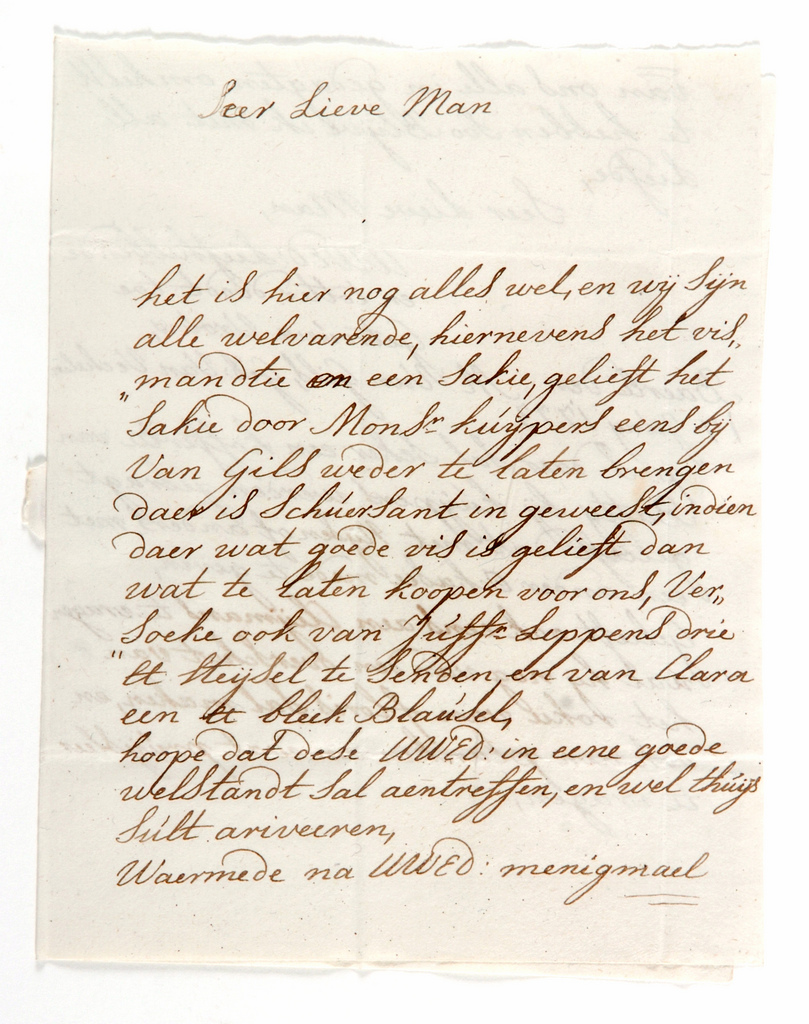 Seer Lieve Man
het is hier nog alles wel, en wij sijn
alle welvarende, hiernevens het vis„
„mandtie en een sakie, gelieft het
sakie door Monsr. kúÿpers eens bij
Van Gils weder te laten brengen
daer is schúersant in geweest, indien
daer wat goede vis is gelieft dan
wat te laten koopen voor ons, Ver„
„soeke ook van Júffr. Leppens drie
℔ steÿsel te senden, en van Clara
een ℔ bleek Blaúsel,
hoope dat dese UWED: in eene goede
welstandt sal aentreffen, en wel thúijs
súlt ariveeren,
Waermede na UWED: menigmael